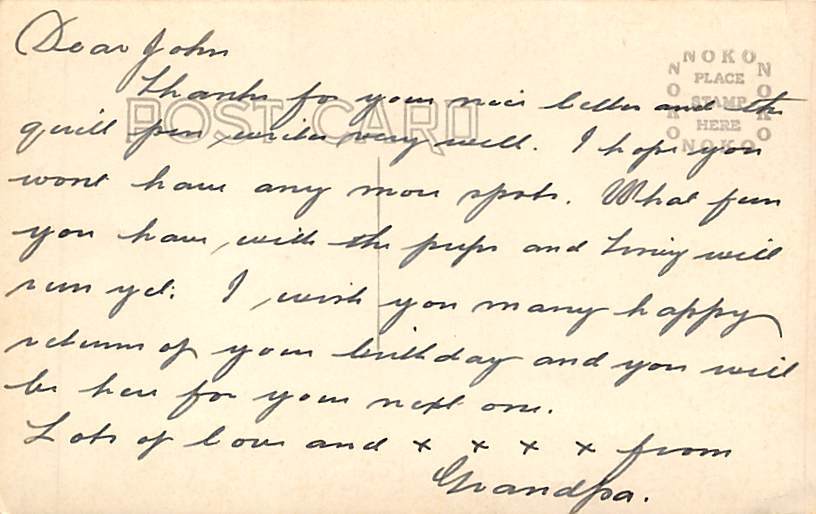 Dear John
Thanks for your nice letter and the
quill pen, writes very well. I hope you
wont have any more spots. What fun
you have with the pups and will
run yet. I wish you many happy
returns of your birthday and you will
be here for your next one.
Lots of love and x x x x from
Grandpa.
POST CARD
NOKO
NOKO
NOKO
NOKO
PLACE
STAMP
HERE